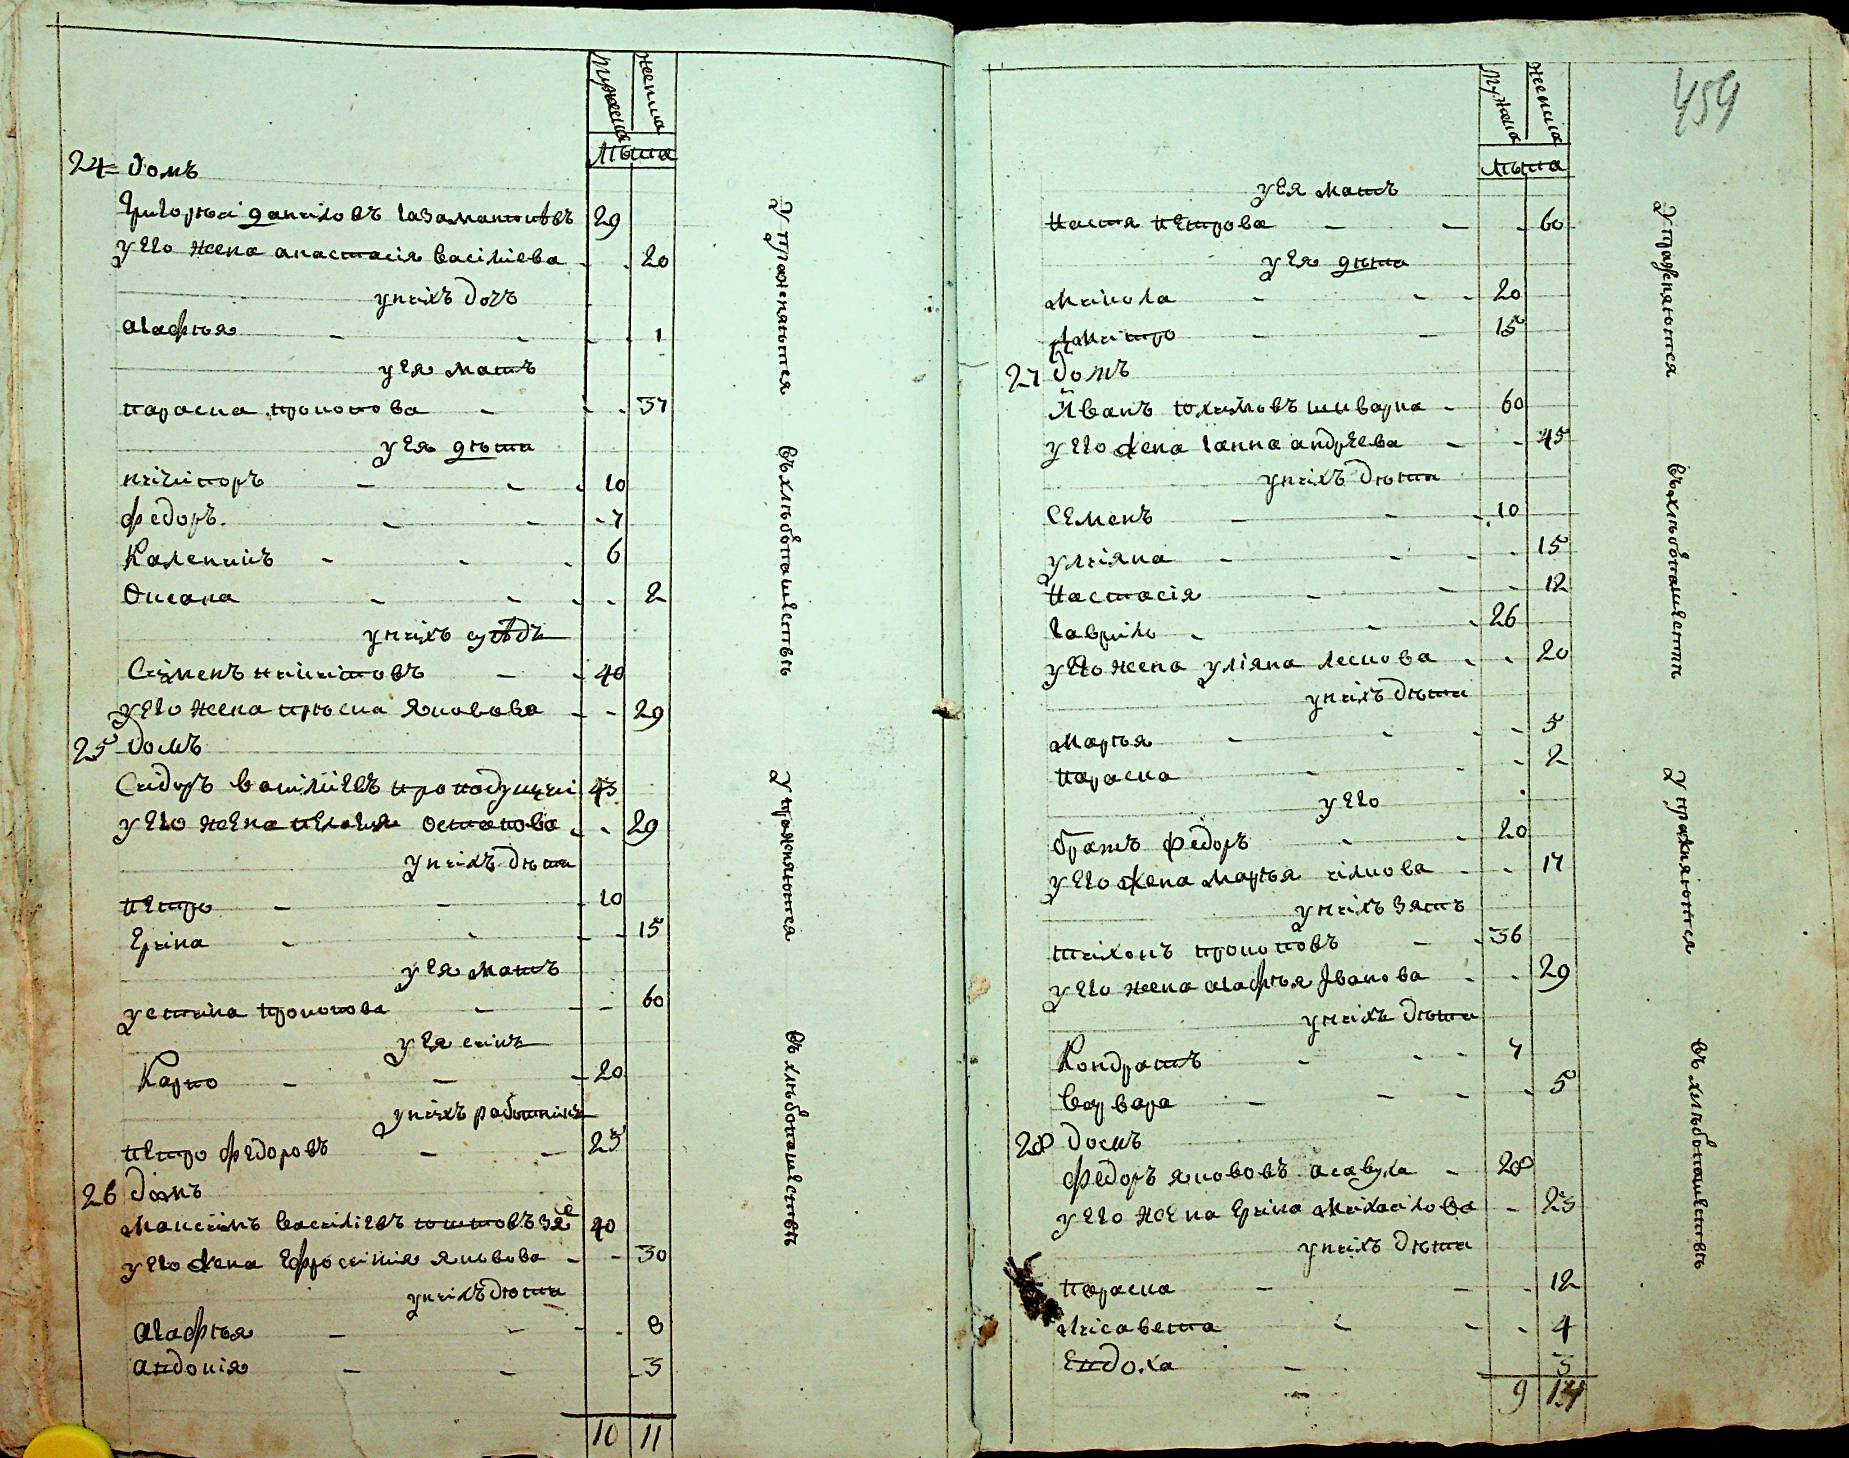 мужеска
женска
лѣта
24 домъ
Григорѣй данилов̾ъ газамантовъ 29
у его жена анастасія васілиева 20
у нихъ дочъ
агафѣя 1
у ея матъ
параска прокопова 37
у ея дѣти
никипоръ 10
федоръ 7
Каленикъ 6
Оксана 2
у нихъ сусѣдъ
Семенъ никитовъ 40
у его жена прѣска яковова 29
25 домъ
Сидоръ василіевъ 43
у его жена пелагѣя остапова 29
у нихъ дѣти
петро 10
Ерина 15
у ея матъ
устина прокопова 60
у ея синъ
Карпо 20
у нихъ работникъ
петро федоровъ 25
26 домъ
максимъ василіевъ 40
у его жена Ефросинія яковова 30
у нихъ дѣти
агафѣя 8
андонія 3
10 11
Упражняются
въ хлѣбопашествѣ
Упражняются
въ хлѣбопашествѣ
459
мужеска
женска
лѣта
у ея матъ
настя петрова 60
у ея дѣти
микола 20
дмитро 15
27 домъ
Иванъ юхимовъ шкварка 60
у его жена ганна андрѣева 45
у нихъ дѣти
Семенъ 10
уліяна 15
настасія 12
гаврило 26
у его жена уліяна леснова 20
у нихъ дѣти
марѣя 5
параска 2
у его
братъ федоръ 20
у его жена марѣя 17
у нихъ зятъ
тихонъ прокоповъ 36
у его жена агафѣя Іванова 29
у нихъ дѣти
Кондратъ 7
варвара 5
28 домъ
федоръ яковов̾ъ асавула 28
у его жена Ерина михаилова 23
у нихъ дѣти
параска 12
лисавета 4
Евдоха 3
9 14
Упражняются
въ хлѣбопашествѣ
Упражняются
въ хлѣбопашествѣ